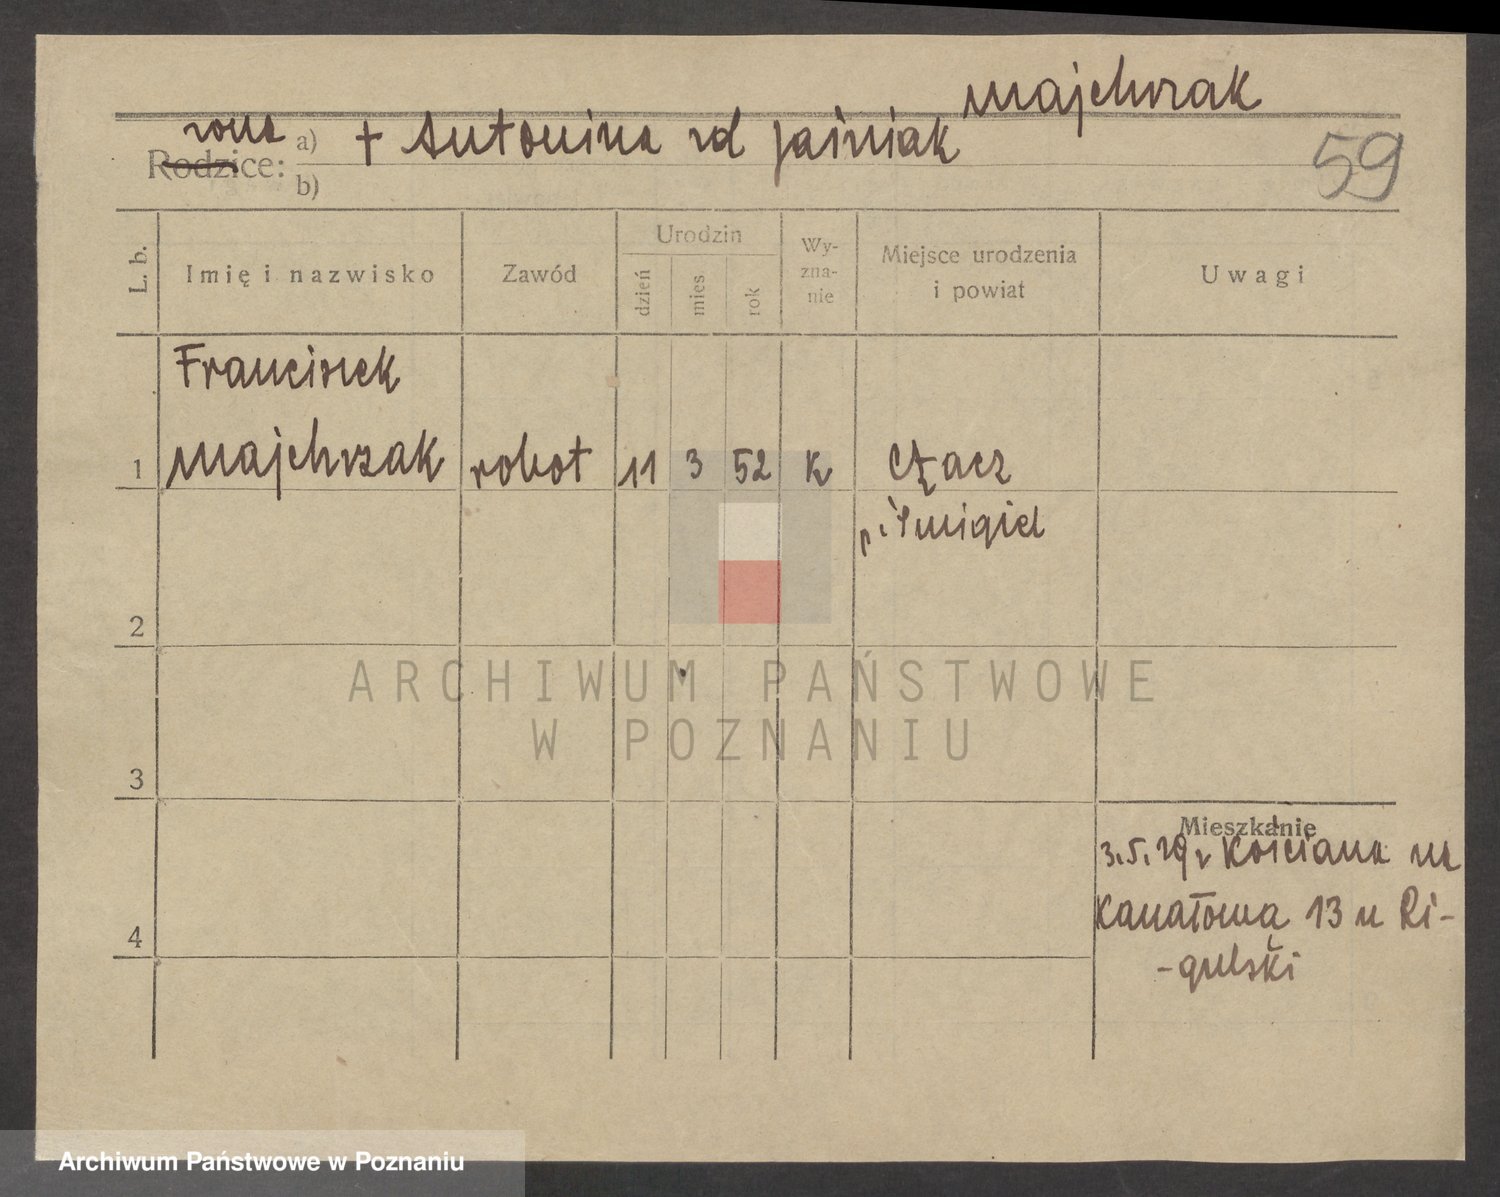 Majchrzak
żona a) + Antonina zd Jaśniak
59
Rodzice:
b)
L. b.
Imię i nazwisko
Zawód
Urodzin
dzień
mies
rok
Wy-
zna-
nie
Miejsce urodzenia
i powiat
Uwagi
Franciszek
1 Majchrzak robot 11 3 52 K Czacz
p. Śmigiel
2
ARCHIWUM PAŃSTWOWE
W POZNANIU
3
Mieszkanie
3.5.29 z Kościana na
4 Kanałową 13 u Ri-
-gulski
Archiwum Państwowe w Poznaniu